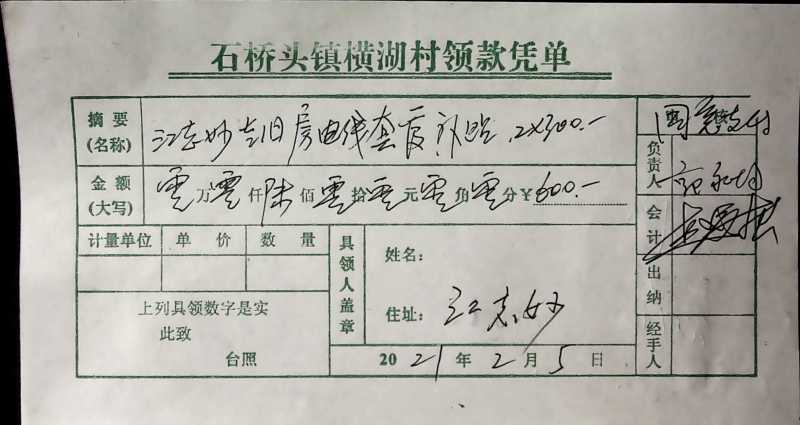 石桥头镇横湖村领款凭单
摘要
(名称)
江志妙 旧房电线套 补贴 2×300.-
金额
(大写)
零万零仟陆佰零拾零元零角零分￥600.-
计量单位 单价 数量
上列具领数字是实
此致
台照
具领人盖章
姓名：
住址：
江志妙
2021年2月5日
负责人
会计
出纳
经手人